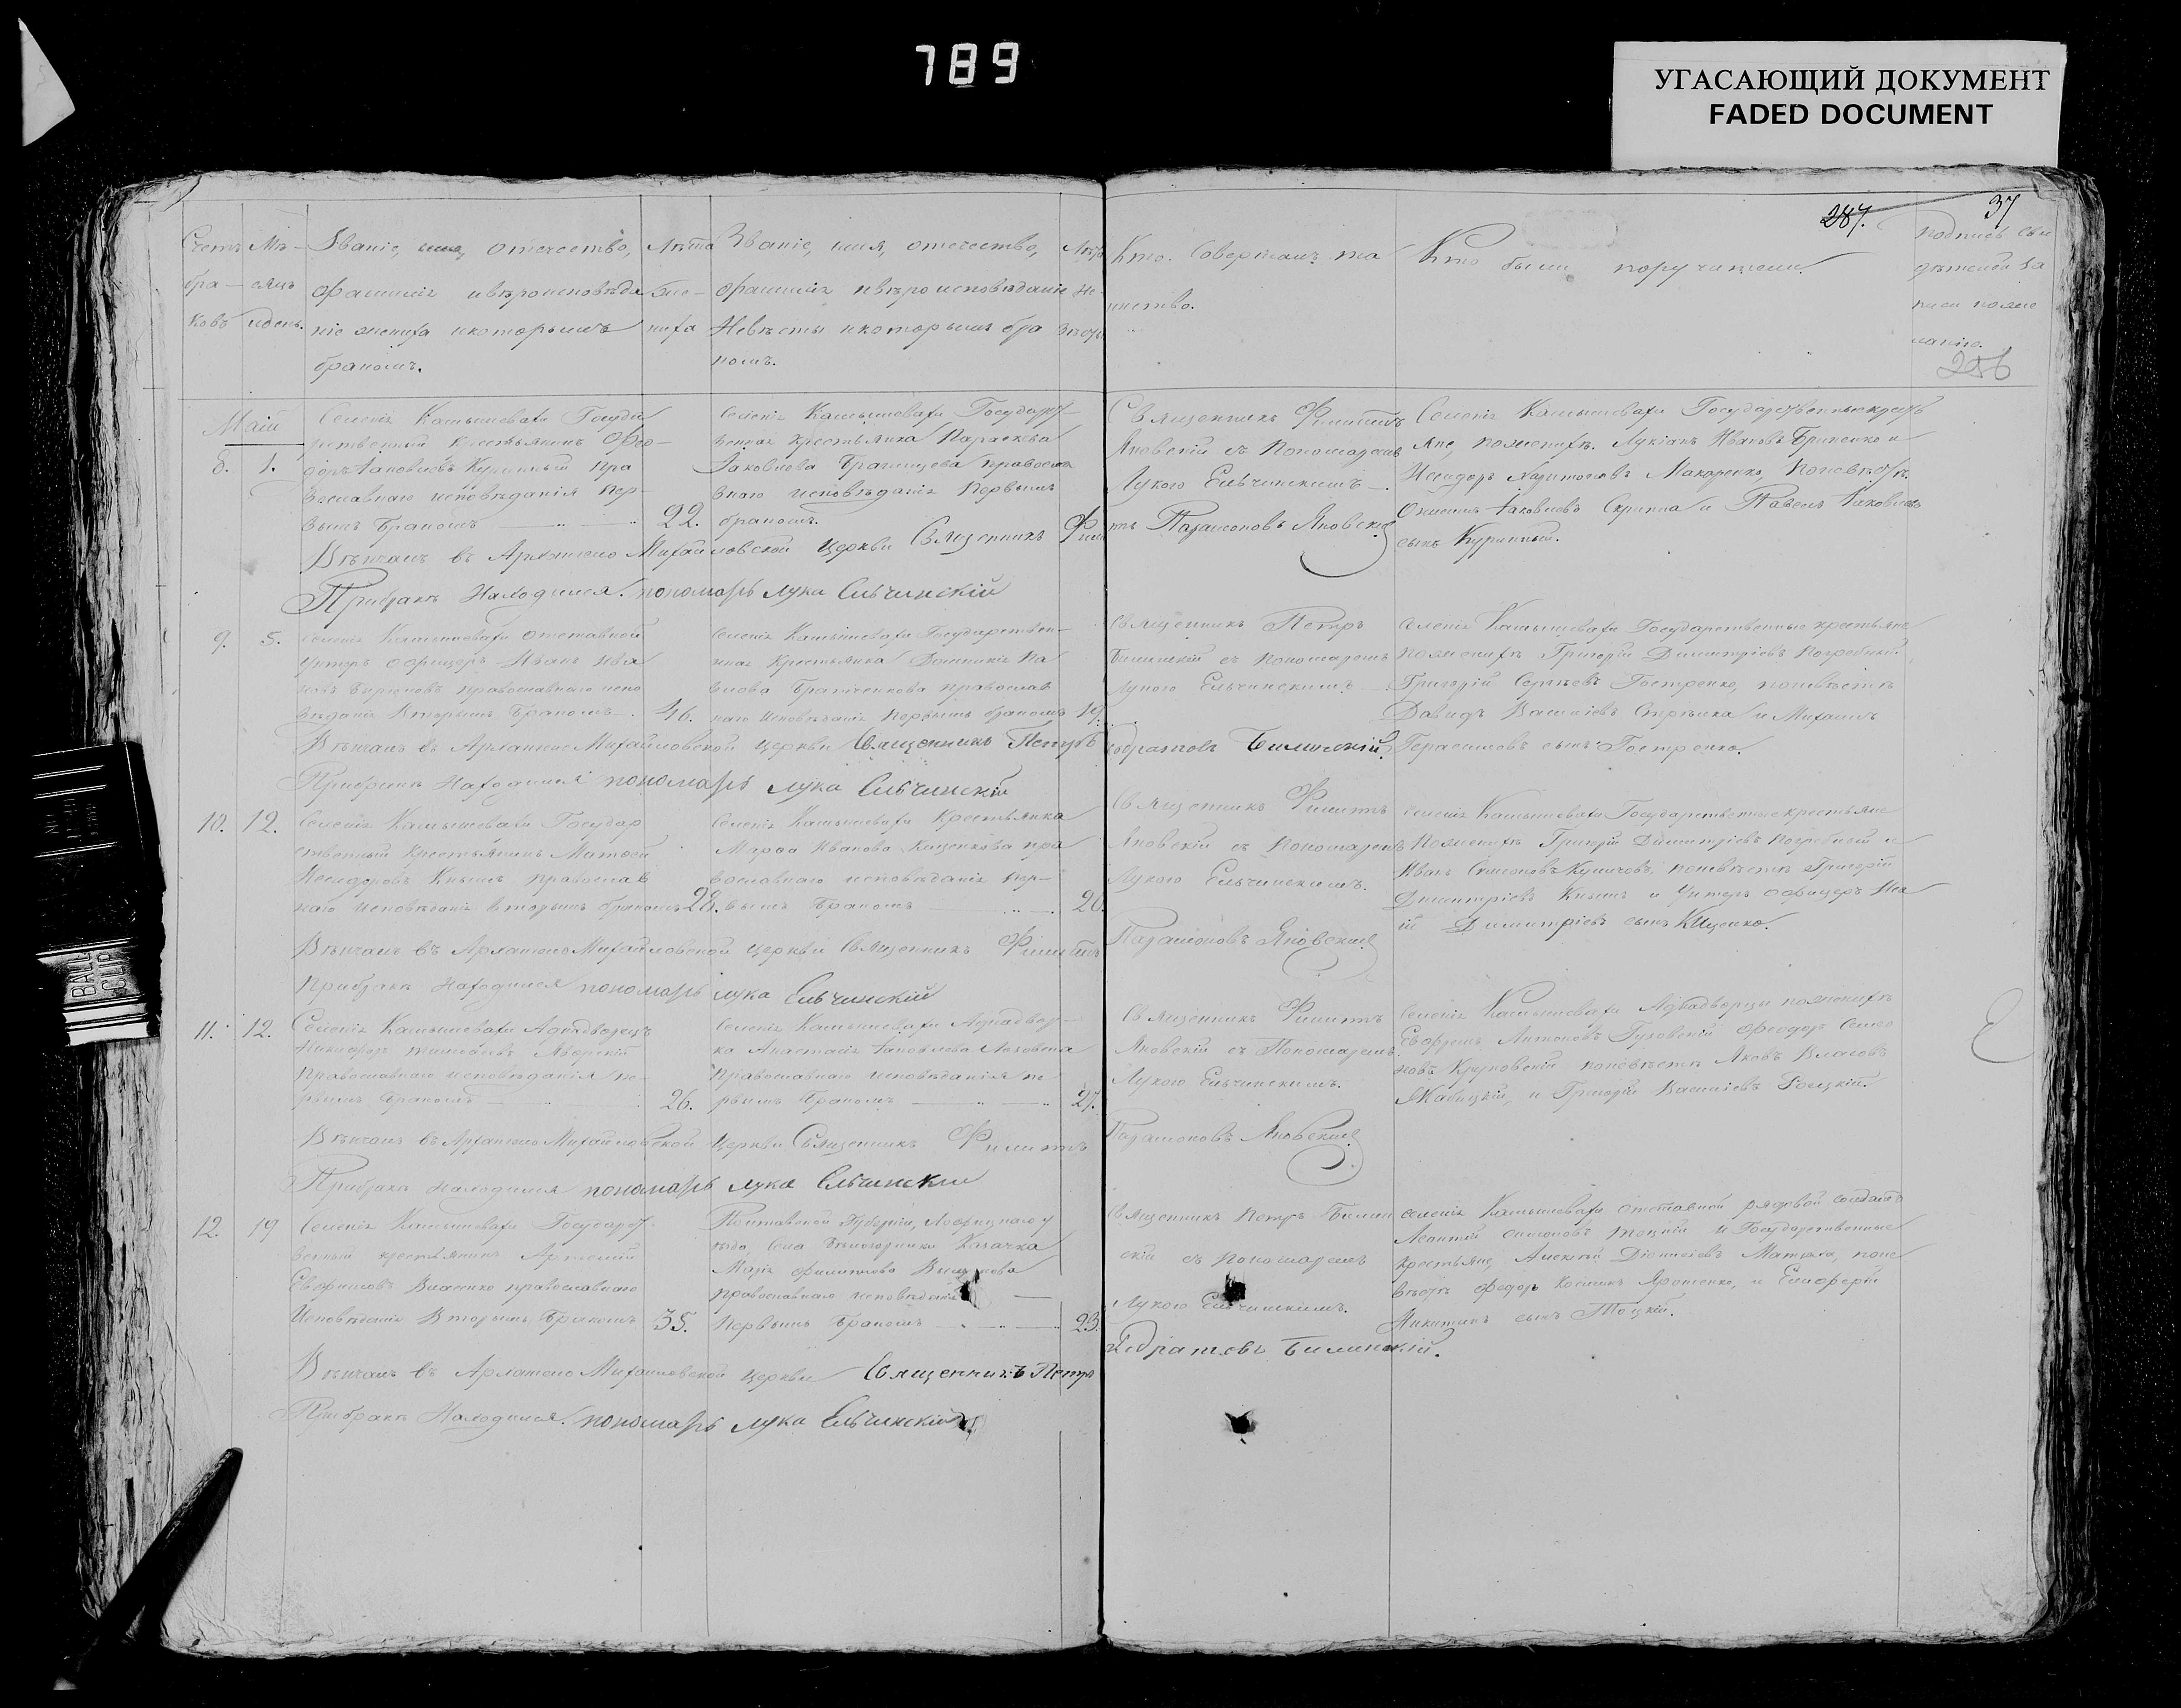 789
УГАСАЮЩИЙ ДОКУМЕНТ
FADED DOCUMENT
287.
37
256
Счетъ бра-ковъ
Мѣ-сяцъ и день.
Званіе, имя, отечество,
фамилія и вѣроисповѣда
ніе жениха и которымъ
бракомъ.
Лѣта же-ниха
Званіе, имя, отечество,
фамилія и вѣроисповѣданіе
Невѣсты и которымъ бра
комъ.
Лѣта не-вѣсты
Кто Совершалъ та
инство.
Кто были поручители.
Подпись сви
дѣтелей за
писи по же
ланію.
Маія
8. 1.
Селенія Камышеватахи Госуда
рственный Крестьянинъ Фео-
доръ Іаковлевъ Куринный пра
вославнаго исповѣданія пер-
вымъ бракомъ 22.
Селенія Камышеватахи Государст
венная крестьянка Параскева
Іаковлева православ
наго исповѣданія первымъ
бракомъ.
Священникъ Филиппъ
Яновскій съ Пономаремъ
Лукою Ельчинскимъ
Селенія Камышеватахи Государственные кресть
яне, по женихѣ. Лукіанъ Ивановъ и
Исидоръ Харитоновъ Макаренко, по невѣстѣ.
Іаковлевъ Скрипка и Павелъ Іаковлевъ
сынъ Куринный.
Вѣнчалъ въ Архангело Михайловской церкви Священникъ Филиппъ Парамоновъ Яновскій
При бракѣ находился пономарь Лука Ельчинскій
9. 5.
Селенія Камышеватахи отставной
Унтеръ офицеръ Иванъ Ива
новъ Бирюковъ православнаго испо
вѣданія Вторымъ бракомъ 46.
Селенія Камышеватахи Государствен-
ная Крестьянка Домникія Па
влова православ
наго исповѣданія первымъ бракомъ 19.
Священникъ Петръ
Билинскій съ Пономаремъ
Лукою Ельчинскимъ
Селенія Камышеватахи Государственные крестьяне
по женихѣ Григорій Димитріевъ Погребный
Григорій Сергѣевъ Гостренко, по невѣстѣ
Давидъ Василіевъ и Михаилъ
Герасимовъ сынъ Гостренко.
Вѣнчалъ въ Архангело Михайловской церкви Священникъ Петръ Кодратовъ Билинскій.
При бракѣ находился пономарь Лука Ельчинскій
10. 12.
Селенія Камышеватахи Государ
ственный Крестьянинъ Матвей
Исидоровъ Кнышъ православ
наго исповѣданія вторымъ бракомъ 28.
Селенія Камышеватахи Крестьянка
Марѳа Иванова Кищенкова пра
вославнаго исповѣданія пер-
вымъ бракомъ 20.
Священникъ Филиппъ
Яновскій съ Пономаремъ
Лукою Ельчинскимъ.
Селенія Камышеватахи Государственные крестьяне
По женихѣ Григорій Димитріевъ Погребный и
Иванъ Симоновъ, по невѣстѣ Григорій
Димитріевъ Кнышъ и Унтеръ офицеръ
Димитріевъ сынъ Кищенко.
Вѣнчалъ въ Архангело Михайловской церкви Священникъ Филиппъ Парамоновъ Яновскій
При бракѣ находился пономарь Лука Ельчинскій
11. 12.
Селенія Камышеватахи Аднадворецъ
Никифоръ Яворскій
Православнаго исповѣданія пе-
рвымъ бракомъ 26.
Селенія Камышеватахи Аднадвор-
ка Анастасія Іаковлева
Православнаго исповѣданія пе
рвымъ бракомъ 27.
Священникъ Филиппъ
Яновскій съ Пономаремъ
Лукою Ельчинскимъ.
Селенія Камышеватахи Аднадворцы по женихѣ
Ефремъ Антоновъ Феодоръ Семео
новъ по невѣстѣ Яковъ Власовъ
и Григорій Василіевъ
Вѣнчалъ въ Архангело Михайловской церкви Священникъ Филиппъ Парамоновъ Яновскій
При бракѣ находился пономарь Лука Ельчинскій
12. 19
Селенія Камышеватахи Государст
венный крестьянинъ Артемій
Евфимовъ православнаго
Исповѣданія Вторымъ бракомъ 35.
Полтавской Губерніи, у
ѣзда, Села Казачка
Марія Филиппова
православнаго исповѣданія
Первымъ бракомъ 23.
Священникъ Петръ Билин
скій съ пономаремъ
Лукою Ельчинскимъ.
Селенія Камышеватахи отставной рядовой солдатъ
Леонтій Симоновъ Тоцкій и Государственные
крестьяне Алексѣй Діонисіевъ, по не
вѣстѣ Феодоръ Ярошенко, и Елифѣрій
Никитинъ сынъ Тоцкій.
Вѣнчалъ въ Архангело Михайловской церкви Священникъ Петръ Кодратовъ Билинскій.
При бракѣ находился пономарь Лука Ельчинскій
BALL
CLIP